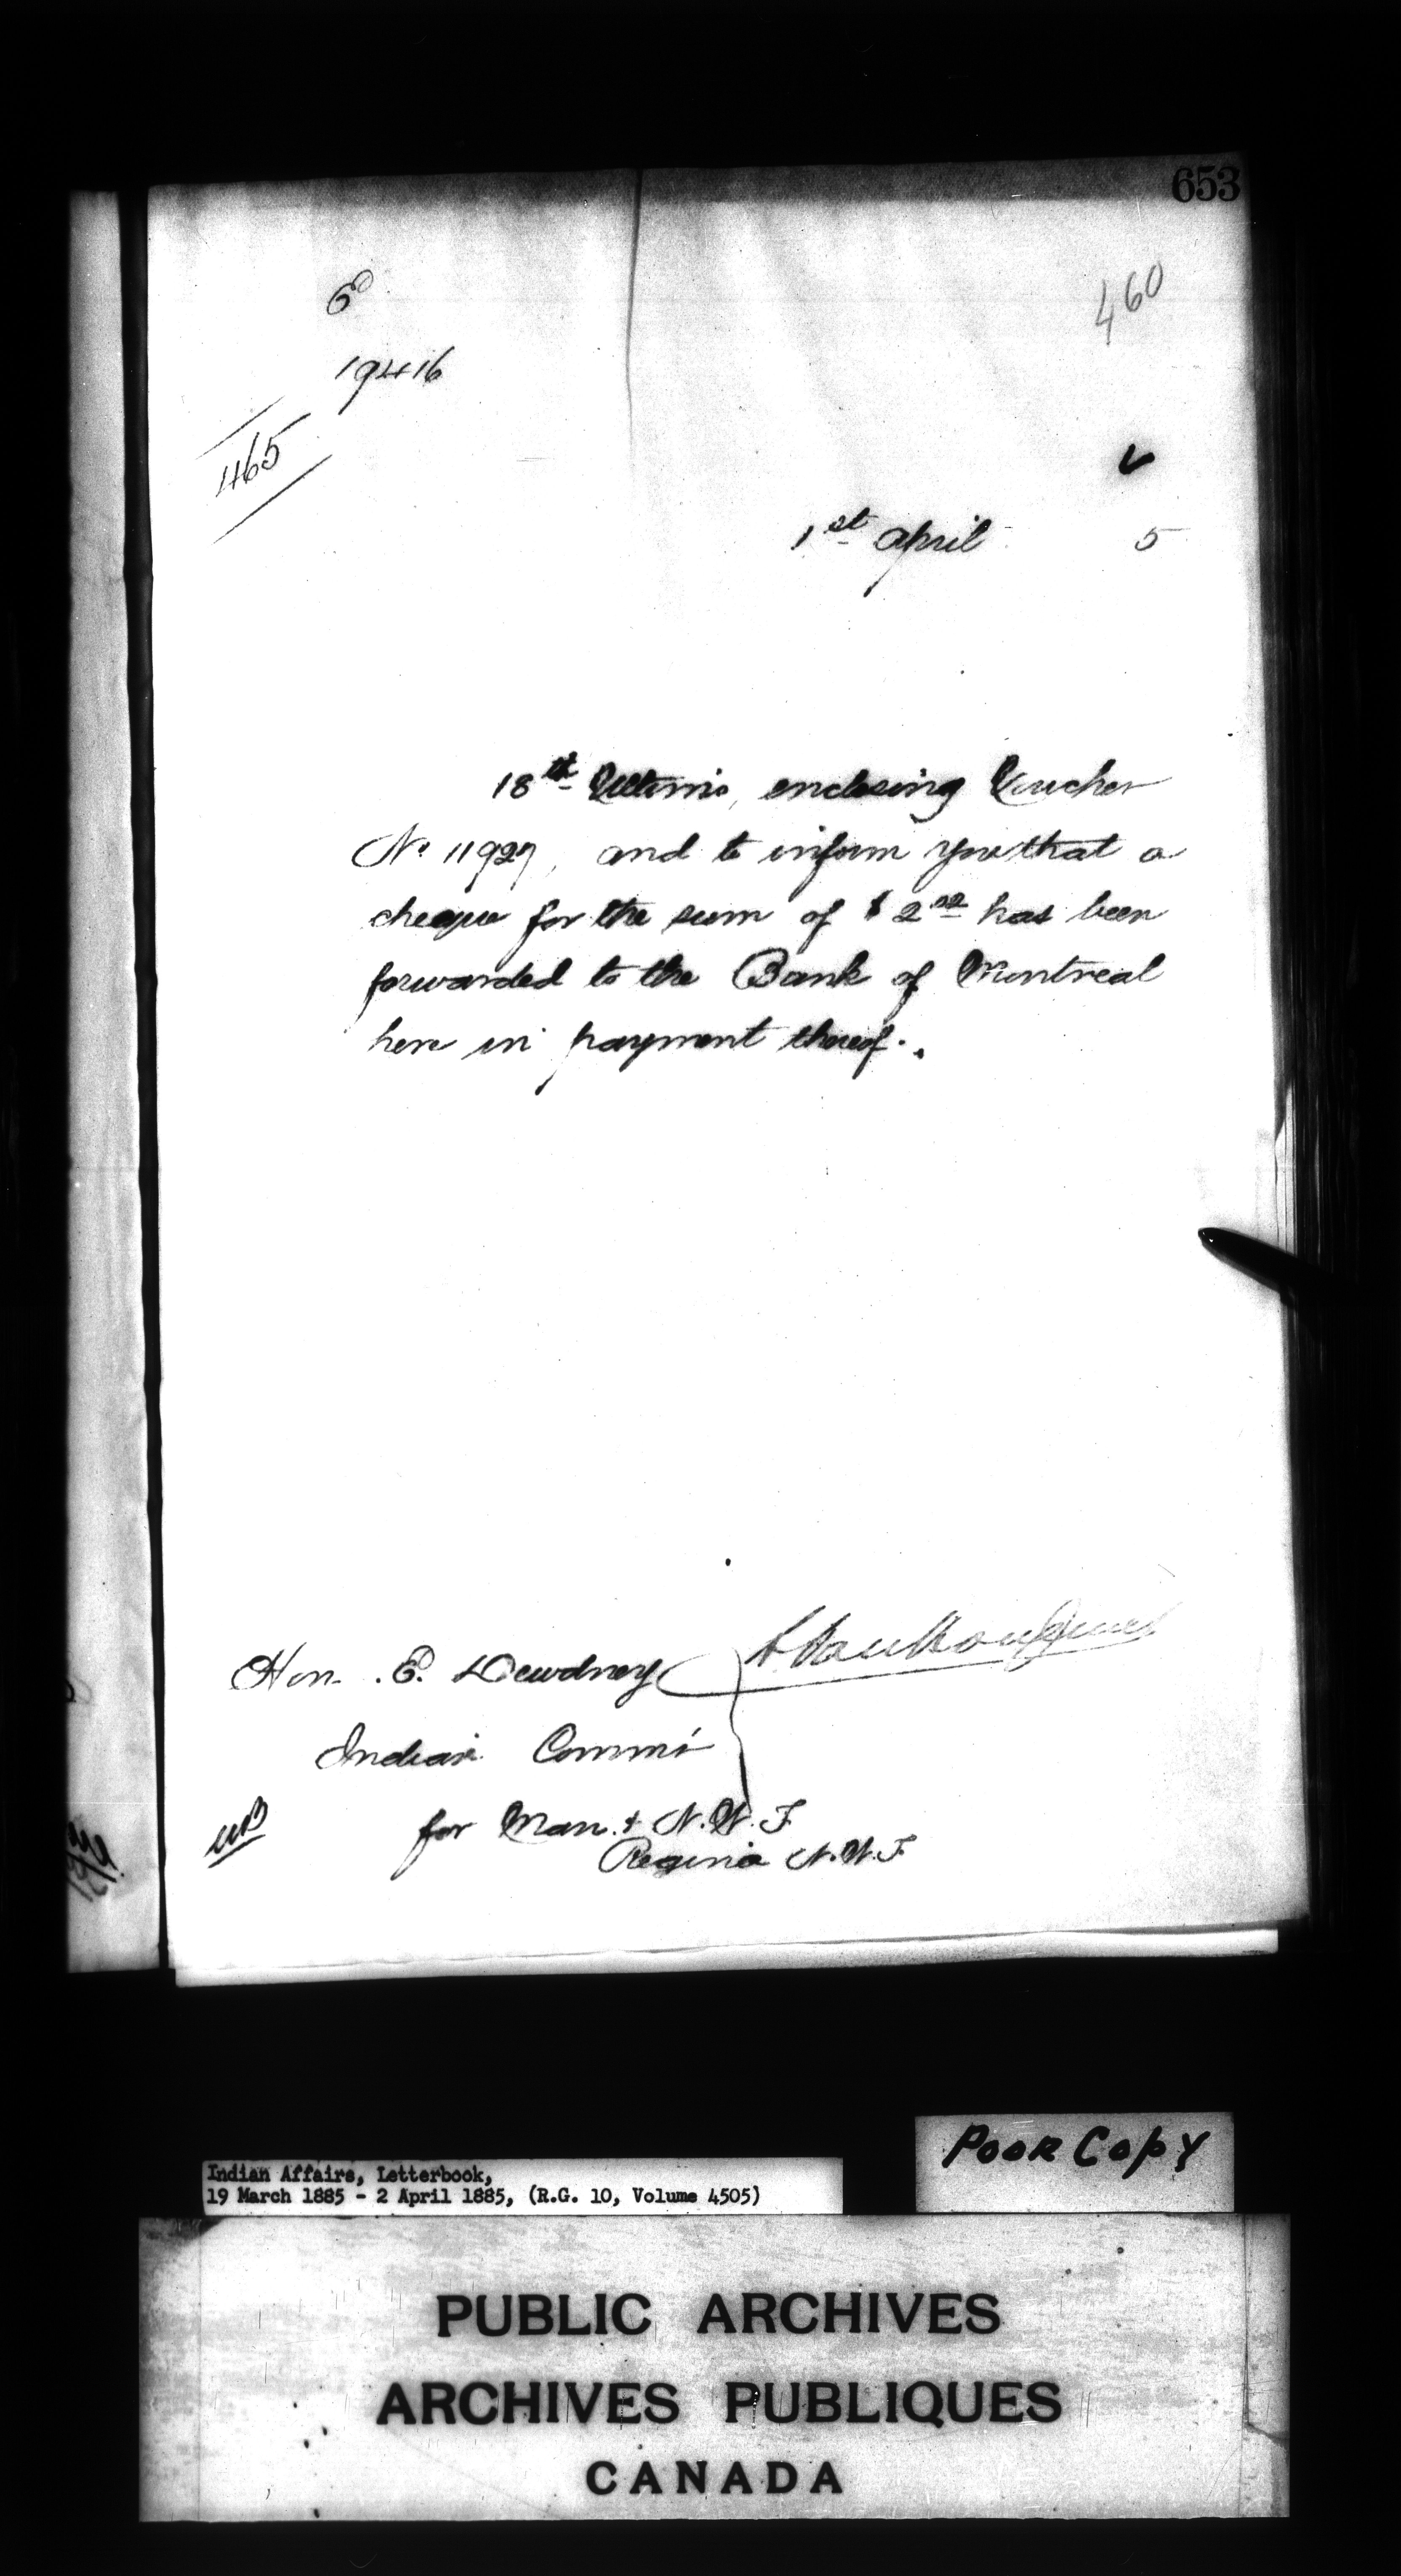 653
460
E
19416
465
1st April 5
18th Ultimo, enclosing Voucher
No. 11927, and to inform you that a
cheque for the sum of $ 2 has been
forwarded to the Bank of Montreal
here in payment thereof.
L. Vankoughnet
Hon. E. Dewdney
Indian Commr
for Man. & N.W.T.
Regina N.W.T.
POOR COPY
Indian Affairs, Letterbook,
19 March 1885 - 2 April 1885, (R.G. 10, Volume 4505)
PUBLIC ARCHIVES
ARCHIVES PUBLIQUES
CANADA